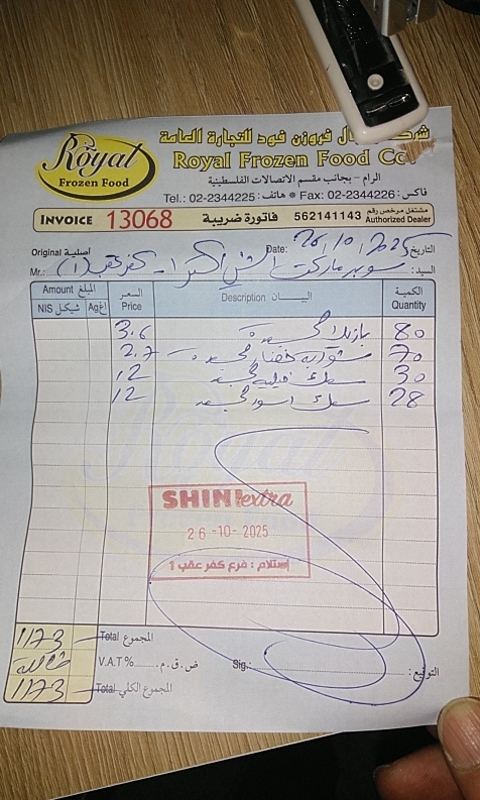 Royal
Frozen Food
فروزن فود للتجارة العامة
Royal Frozen Food Co
الرام - بجانب مقسم الاتصالات الفلسطينية
Tel.: 02-2344225 : هاتف • Fax: 02-2344226 : فاكس
INVOICE 13068 فاتورة ضريبية 562141143 مشتغل مرخص رقم Authorized Dealer
Original أصلية Date: 26/10/2025 التاريخ
Mr.: سوبر ماركت كفر عقب (1) السيد:
Amount المبلغ السعر Price Description البيــــان الكمية Quantity
NIS شيكل Ag اغ
3.6 بازيلا مجمدة 80
2.7 مجمدة 70
12 سمك فيليه مجمد 30
12 سمك مجمد 28
SHINI extra
26-10-2025
إستلام : فرع كفر عقب 1
1173 Total المجموع
V.A.T % ض.ق.م. Sig.: التوقيع:
1173 Total المجموع الكلي